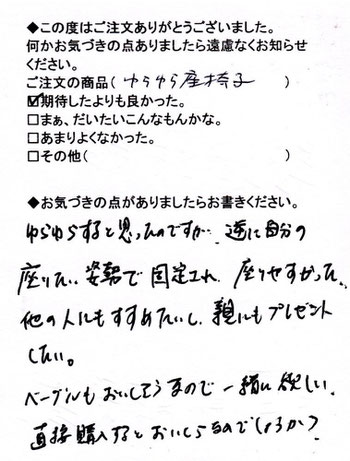 ◆この度はご注文ありがとうございました。
何かお気づきの点ありましたら遠慮なくお知らせ
ください。
ご注文の商品( ゆらゆら座椅子 )
☑期待したよりも良かった。
□まぁ、だいたいこんなもんかな。
□あまりよくなかった。
□その他( )
◆お気づきの点がありましたらお書きください。
ゆらゆらすると思ったのですが 逆に自分の
座りたい姿勢で固定され、座りやすかった。
他の人にもすすめたいし、親にもプレゼント
したい。
ベーグルもおいしそうなので一緒に欲しい。
直接購入するとおいくらなのでしょうか?